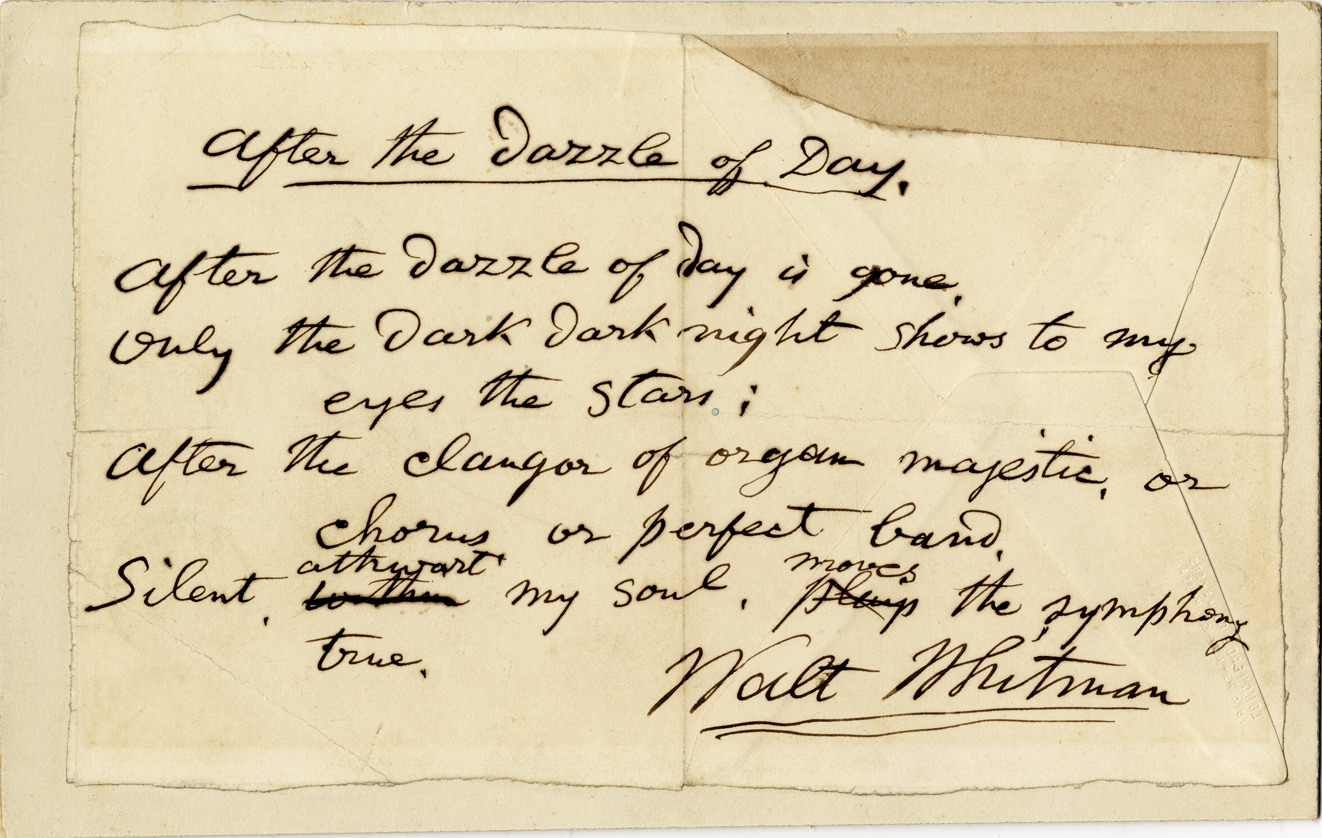 After the Dazzle of Day.
After the dazzle of day is gone,
Only the dark dark night shows to my
eyes the stars;
After the clangor of organ majestic, or
chorus or perfect band,
athwart moves
Silent, within my soul, plays the symphony
true.
Walt Whitman